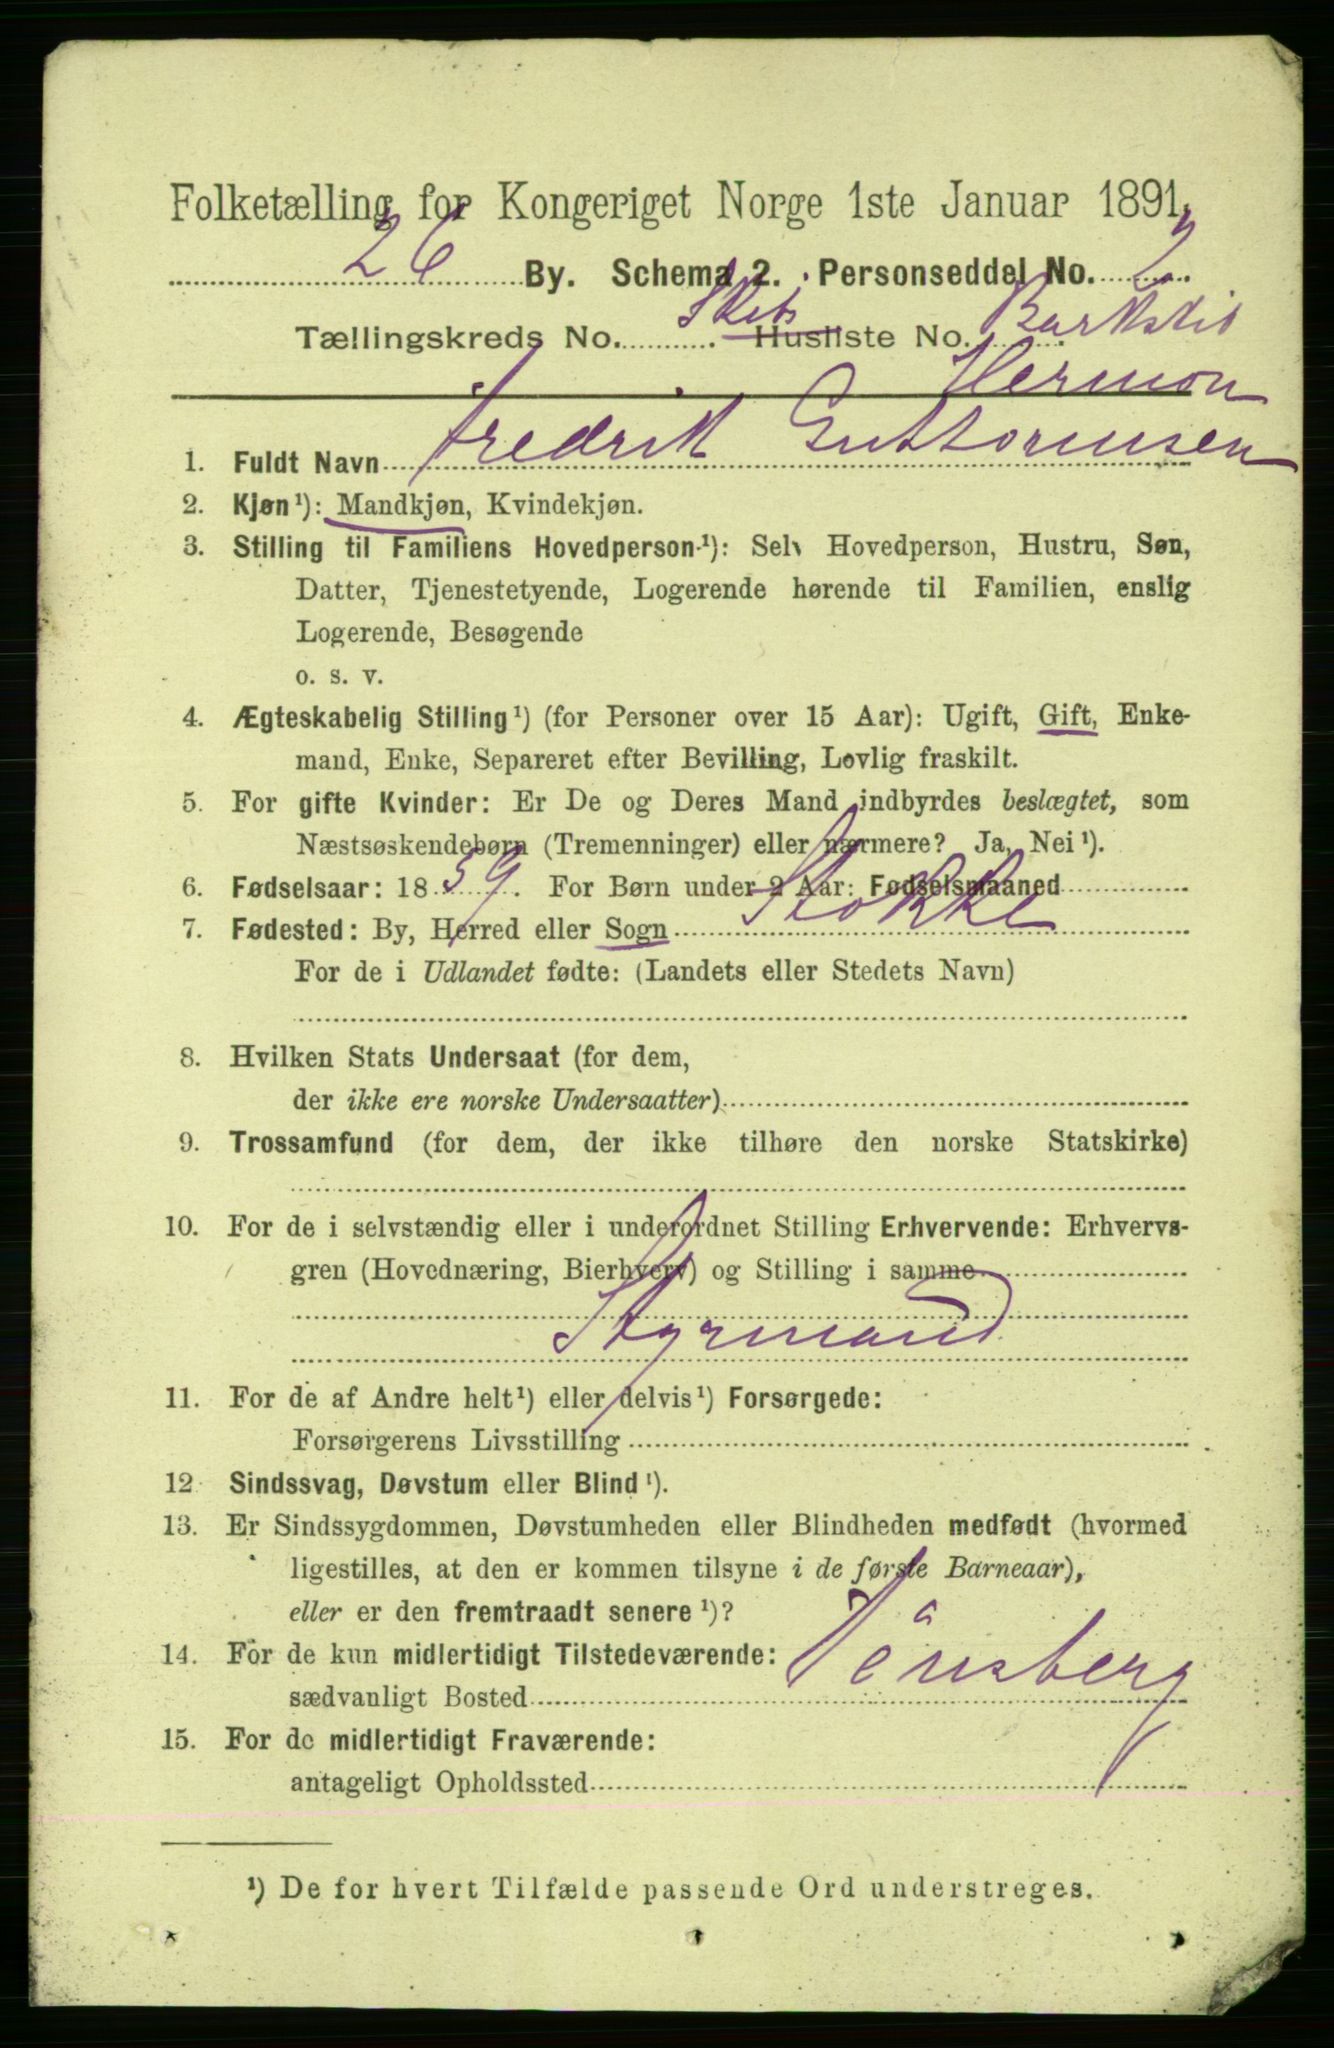 Folketælling for Kongeriget Norge 1ste Januar 1891.
26 By. Schema 2. Personseddel No. 2
Tællingskreds No. Skibs Husliste No. Barkskib
Hermon
1. Fuldt Navn Fredrik Guttormsen
2. Kjøn ¹): Mandkjøn, Kvindekjøn.
3. Stilling til Familiens Hovedperson ¹): Selv Hovedperson, Hustru, Søn,
Datter, Tjenestetyende, Logerende hørende til Familien, enslig
Logerende, Besøgende
o. s. v.
4. Ægteskabelig Stilling ¹) (for Personer over 15 Aar): Ugift, Gift, Enke-
mand, Enke, Separeret efter Bevilling, Lovlig fraskilt.
5. For gifte Kvinder: Er De og Deres Mand indbyrdes beslægtet, som
Næstsøskendebørn (Tremenninger) eller nærmere? Ja, Nei ¹).
6. Fødselsaar: 1859. For Børn under 2 Aar: Fødselsmaaned
7. Fødested: By, Herred eller Sogn Stokke
For de i Udlandet fødte: (Landets eller Stedets Navn)
8. Hvilken Stats Undersaat (for dem,
der ikke ere norske Undersaatter)
9. Trossamfund (for dem, der ikke tilhøre den norske Statskirke)
10. For de i selvstændig eller i underordnet Stilling Erhvervende: Erhvervs-
gren (Hovednæring, Bierhverv) og Stilling i samme
Styrmand
11. For de af Andre helt ¹) eller delvis ¹) Forsørgede:
Forsørgerens Livsstilling
12 Sindssvag, Døvstum eller Blind ¹).
13. Er Sindssygdommen, Døvstumheden eller Blindheden medfødt (hvormed
ligestilles, at den er kommen tilsyne i de første Barneaar),
eller er den fremtraadt senere ¹)?
14. For de kun midlertidigt Tilstedeværende:
sædvanligt Bosted Tønsberg
15. For de midlertidigt Fraværende:
antageligt Opholdssted
¹) De for hvert Tilfælde passende Ord understreges.